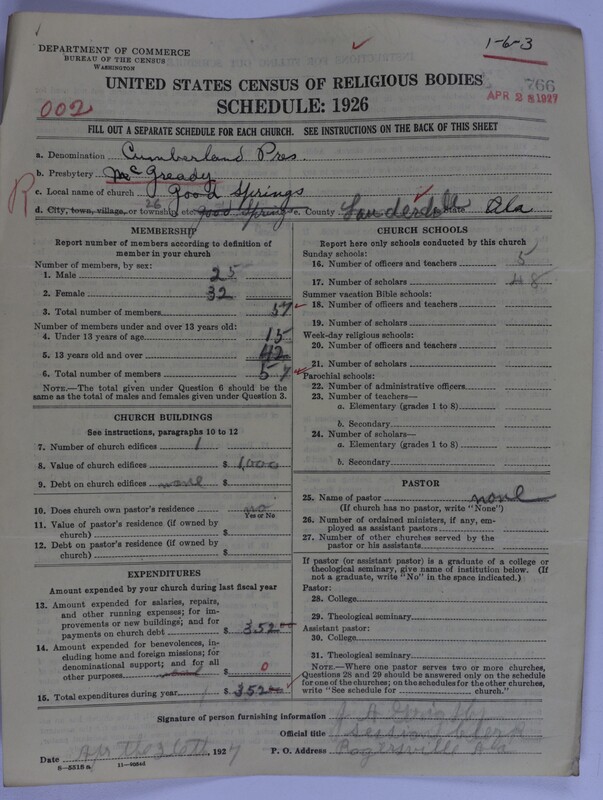 1-6-3
DEPARTMENT OF COMMERCE
BUREAU OF THE CENSUS
WASHINGTON
UNITED STATES CENSUS OF RELIGIOUS BODIES
766
APR 28 1927
002
SCHEDULE: 1926
FILL OUT A SEPARATE SCHEDULE FOR EACH CHURCH. SEE INSTRUCTIONS ON THE BACK OF THIS SHEET
a. Denomination Cumberland Pres.
b. Presbytery McGready
R
c. Local name of church Good Springs
d. City, town, village, or township, etc. Good Spring e. County Lauderdale State Ala
MEMBERSHIP
Report number of members according to definition of
member in your church
Number of members, by sex:
1. Male 25
2. Female 32
3. Total number of members 57
Number of members under and over 13 years old:
4. Under 13 years of age 15
5. 13 years old and over 42
6. Total number of members 57
NOTE.—The total given under Question 6 should be
same as the total of males and females given under Question 3.
CHURCH BUILDINGS
See instructions, paragraphs 10 to 12
7. Number of church edifices 1
8. Value of church edifices $ 1,000
9. Debt on church edifices none $
10. Does church own pastor's residence no
Yes or No
11. Value of pastor's residence (if owned by
church) $
12. Debt on pastor's residence (if owned by
church) $
EXPENDITURES
Amount expended by your church during last fiscal year
13. Amount expended for salaries, repairs,
and other running expenses; for im-
provements or new buildings; and for
payments on church debt $ 352.00
14. Amount expended for benevolences, in-
cluding home and foreign missions; for
denominational support; and for all
other purposes $ 0
15. Total expenditures during year $ 352.00
CHURCH SCHOOLS
Report here only schools conducted by this church
Sunday schools:
16. Number of officers and teachers 5
17. Number of scholars 48
Summer vacation Bible schools:
18. Number of officers and teachers
19. Number of scholars
Week-day religious schools:
20. Number of officers and teachers
21. Number of scholars
Parochial schools:
22. Number of administrative officers
23. Number of teachers—
a. Elementary (grades 1 to 8)
b. Secondary
24. Number of scholars—
a. Elementary (grades 1 to 8)
b. Secondary
PASTOR
25. Name of pastor none
(If church has no pastor, write "None")
26. Number of ordained ministers, if any, em-
ployed as assistant pastors
27. Number of other churches served by the
pastor or his assistants
If pastor (or assistant pastor) is a graduate of a college or
theological seminary, give name of institution below. (If
not a graduate, write "No" in the space indicated.)
Pastor:
28. College
29. Theological seminary
Assistant pastor:
30. College
31. Theological seminary
NOTE.—Where one pastor serves two or more churches,
Questions 28 and 29 should be answered only on the schedule
for one of the churches; on the schedules for the other churches,
write "See schedule for church."
Signature of person furnishing information J. A.
Official title Session Clerk
Date Apr the 26th 1927 P. O. Address Rogersville Ala
8-5518 a